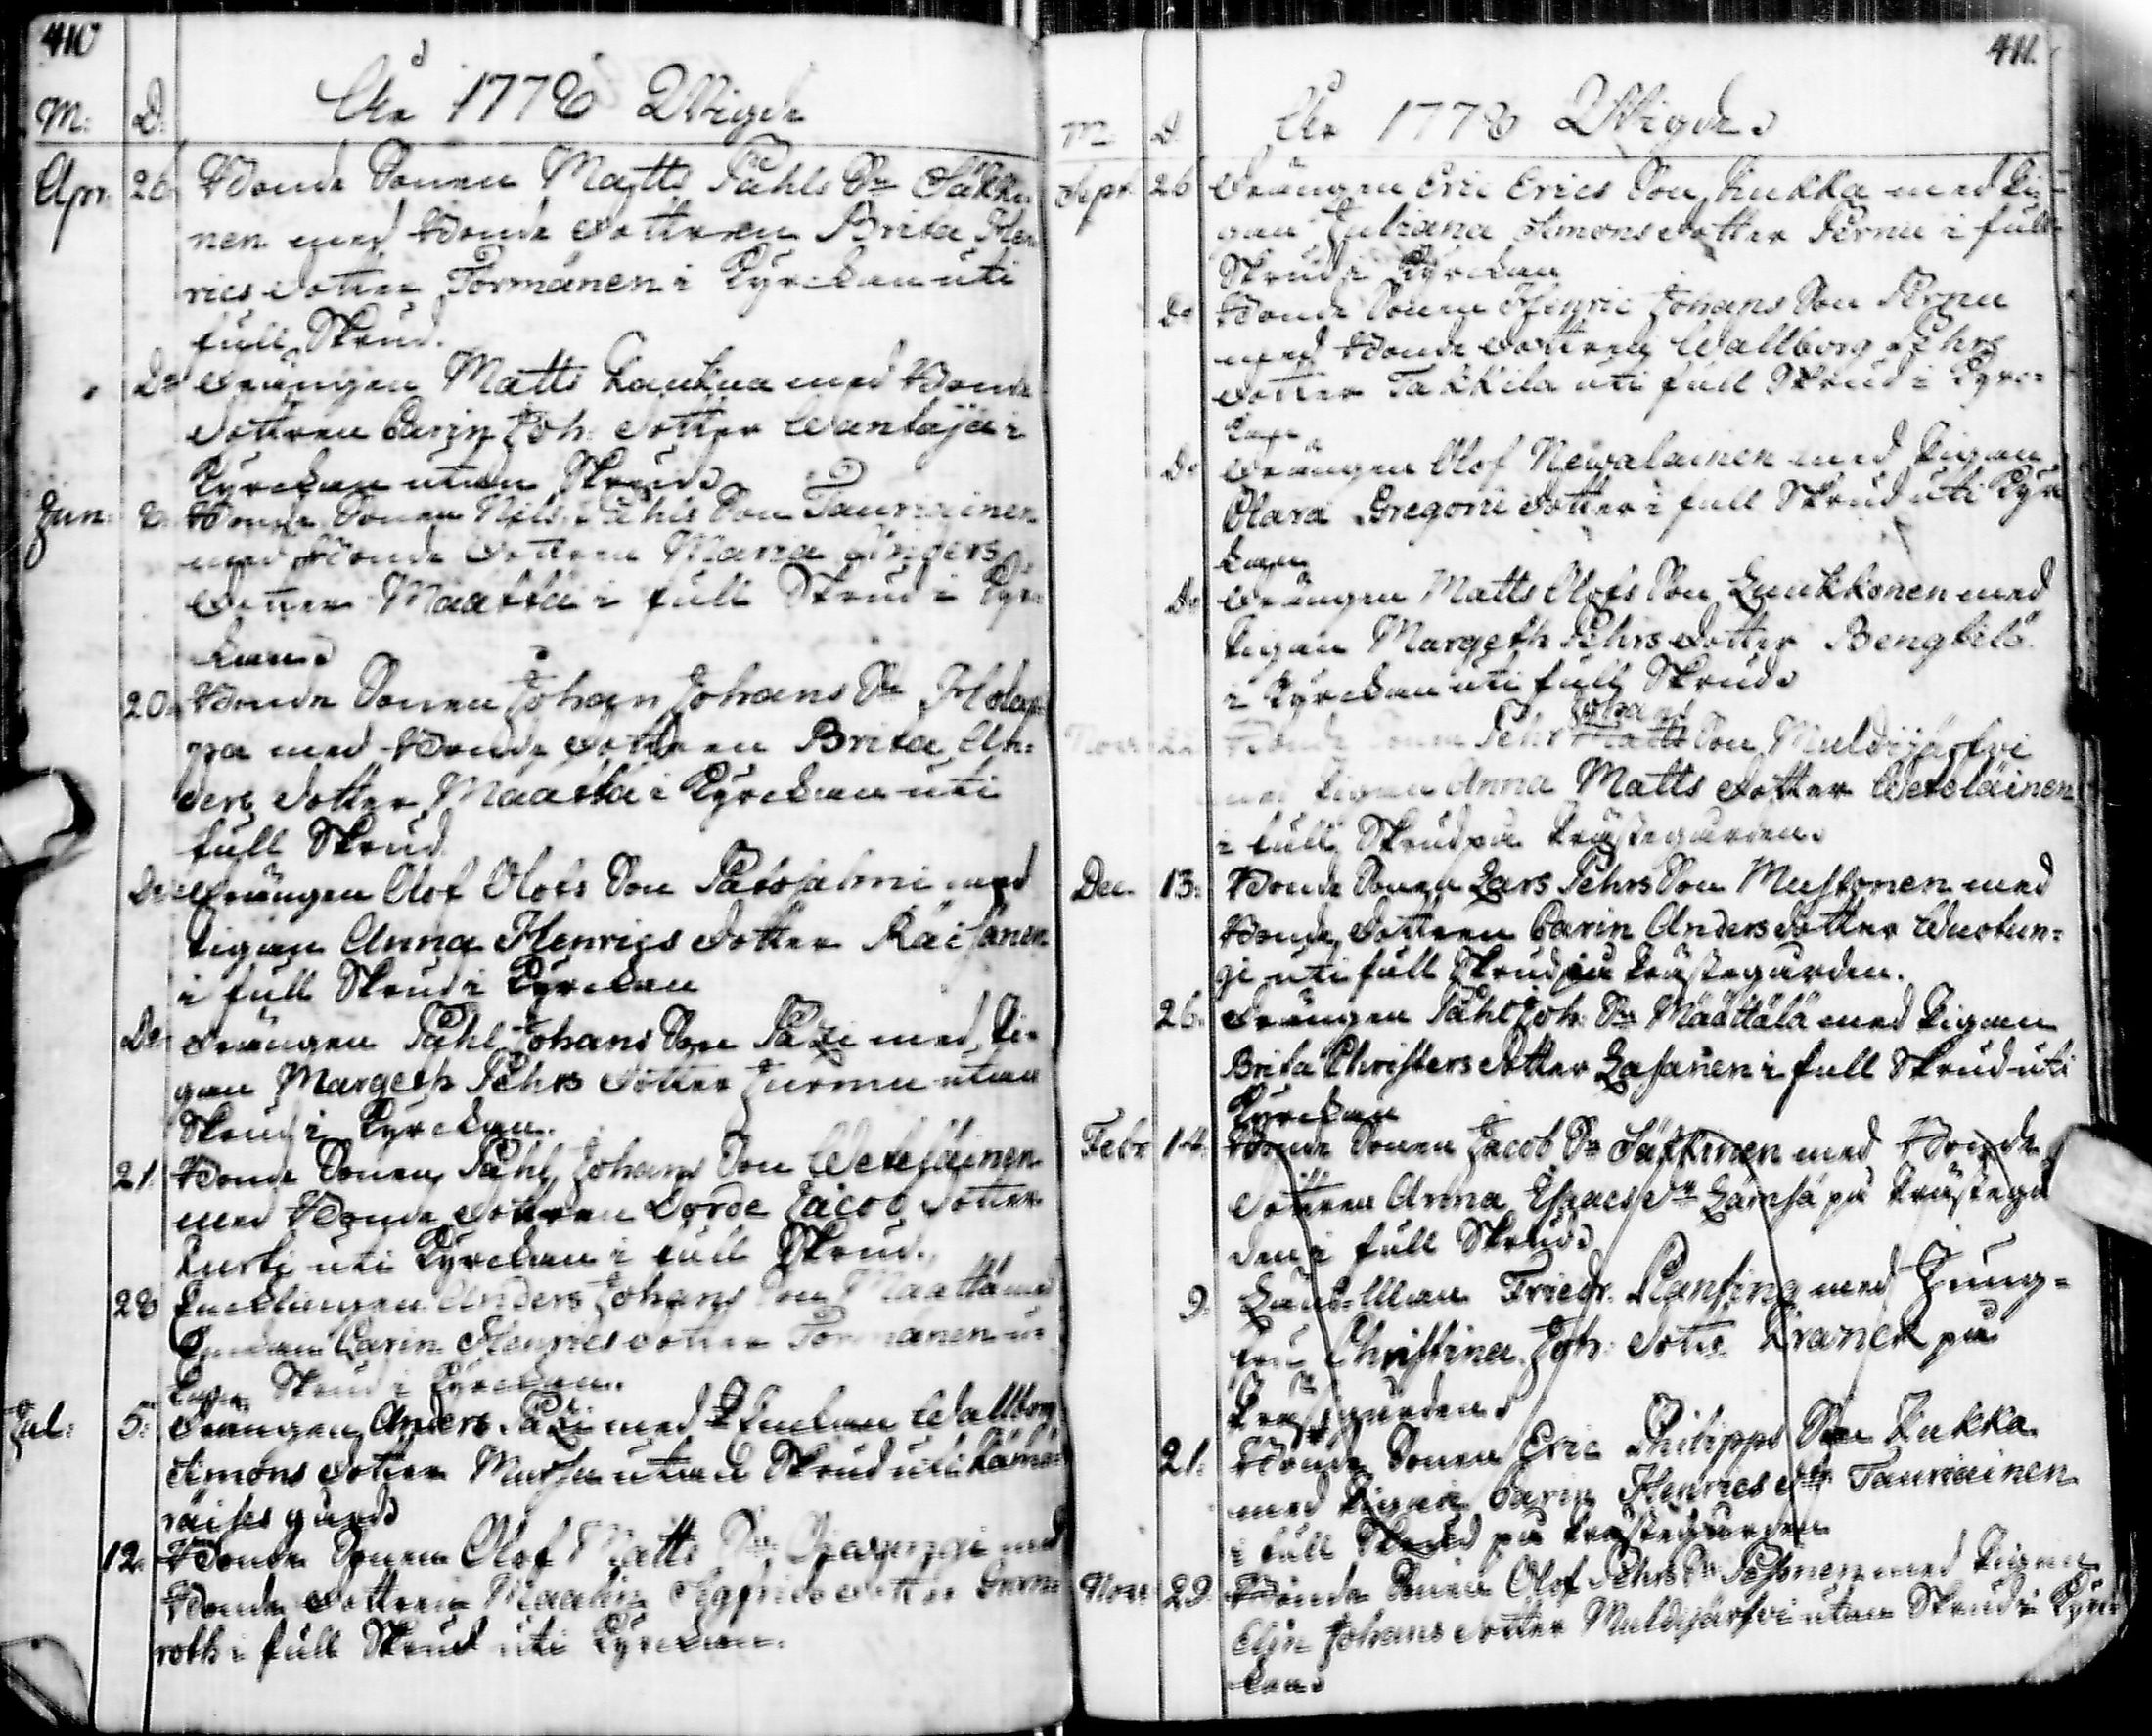 410
År 1778 Wigde
M: D.
Apr. 26 Bonde Sonen Matts Påhls Sn Säkki-
nen med Bonde dotteren Brita Hen
rics dotter Törmänen i Kyrckan uti
full Skrud.
Do Drängen Matts Kaukua med Bonde
dottren Carin Joh: dotter Wantaja i
Kyrckan utan Skrud
Jun: Bonde Sonen Nils Påhls Son Tauriainen
med Bonde Dottren Maria Anders
Dotter Määttä i full Skrud i Kyr-
kan.
20. Bonde Sonen Johan Johans Sn Holap-
pa med Bonde dottren Brita An-
ders dotter Määttä i Kyrckan uti
full Skrud
Do Drängen Olof Olofs Son Patosalmi med
Pigan Anna Henrics dotter Räisänen
i full Skrud i Kyrckan
Do Drängen Påhl Johans Son Pazi med Pi-
gan Margeth Pehrs dotter Jurmu utan
Skrud i Kyrckan.
21. Bonde Sonen Påhl Johans Son Weteläinen
med Bonde dottren Lorde Jacob dotter
Kurti uti Kyrckan i full Skrud.
28 Enklingen Anders Johans Son Määttä med
Enckan Carin Henrics dotter Törmänen u-
Skrud i Kyrckan.
Jul: 5: Drängen Anders Pazi med Enckan Wallborg
Simons dotter Mursu utan Skrud uti Kämä-
räises gård
12. Bonde Sonen Olof Matts Sn med
Bonde dottren Maalin Sigfrids dotter Grann
roth i full Skrud uti Kyrckan.
411.
År 1778 Wigde
M: D.
Sept. 26 Drängen Eric Erics Son Kukka med Pi-
gan Juliana Simons dotter Pernu i full
Skrud i Kyrckan
Do Bonde Sonen Henric Johans Son Pernu
med Bonde dottren Wallborg Pehrs
dotter Takkila uti full Skrud i Kyrc-
kan
Do Drängen Olof Newalainen med Pigan
Clara Gregorii dotter i full Skrud uti Kyr
kan
Do Drängen Matts Olofs Son Luukkonen med
Pigan Margeth Pehrs dotter Bengtilä
i Kyrckan uti full Skrud
Johans
Nov. 22 Bonde Sonen Pehr Matts Son Muldijärfwi
med Pigan Anna Matts dotter Weteläinen
i full Skrud på Prästegården.
Dec. 13: Bonde Sonen Lars Pehrs Son Mustonen med
Bonde dottren Carin Anders dotter Wuotun-
gi uti full Skrud på Prästegården.
26. Drängen Påhl Joh: Sn Määttälä med Pigan
Brita Christers dotter Lasanen i full Skrud uti
Kyrckan
Febr 14. Bonde Sonen Jacob Sn Säkkinen med Bonde
dottren Anna Isaacs Dr Lämsä på Prästegå
den i full Skrud
9. Länsman Friedr. Planting med Jung-
fru Christina Joh: dotter Franck på
Prästgården.
21. Bonde Sonen Eric Philipps Son Kukka
med Pigan Carin Henrics dr Tauriainen
i full Skrud på Prästegården
Nov: 29. Bonde Sonen Olof Pehrs Sn Pesonen med Pigan
Elin Johans dotter Muldijärfwi utan Skrud i Kyrc
kan